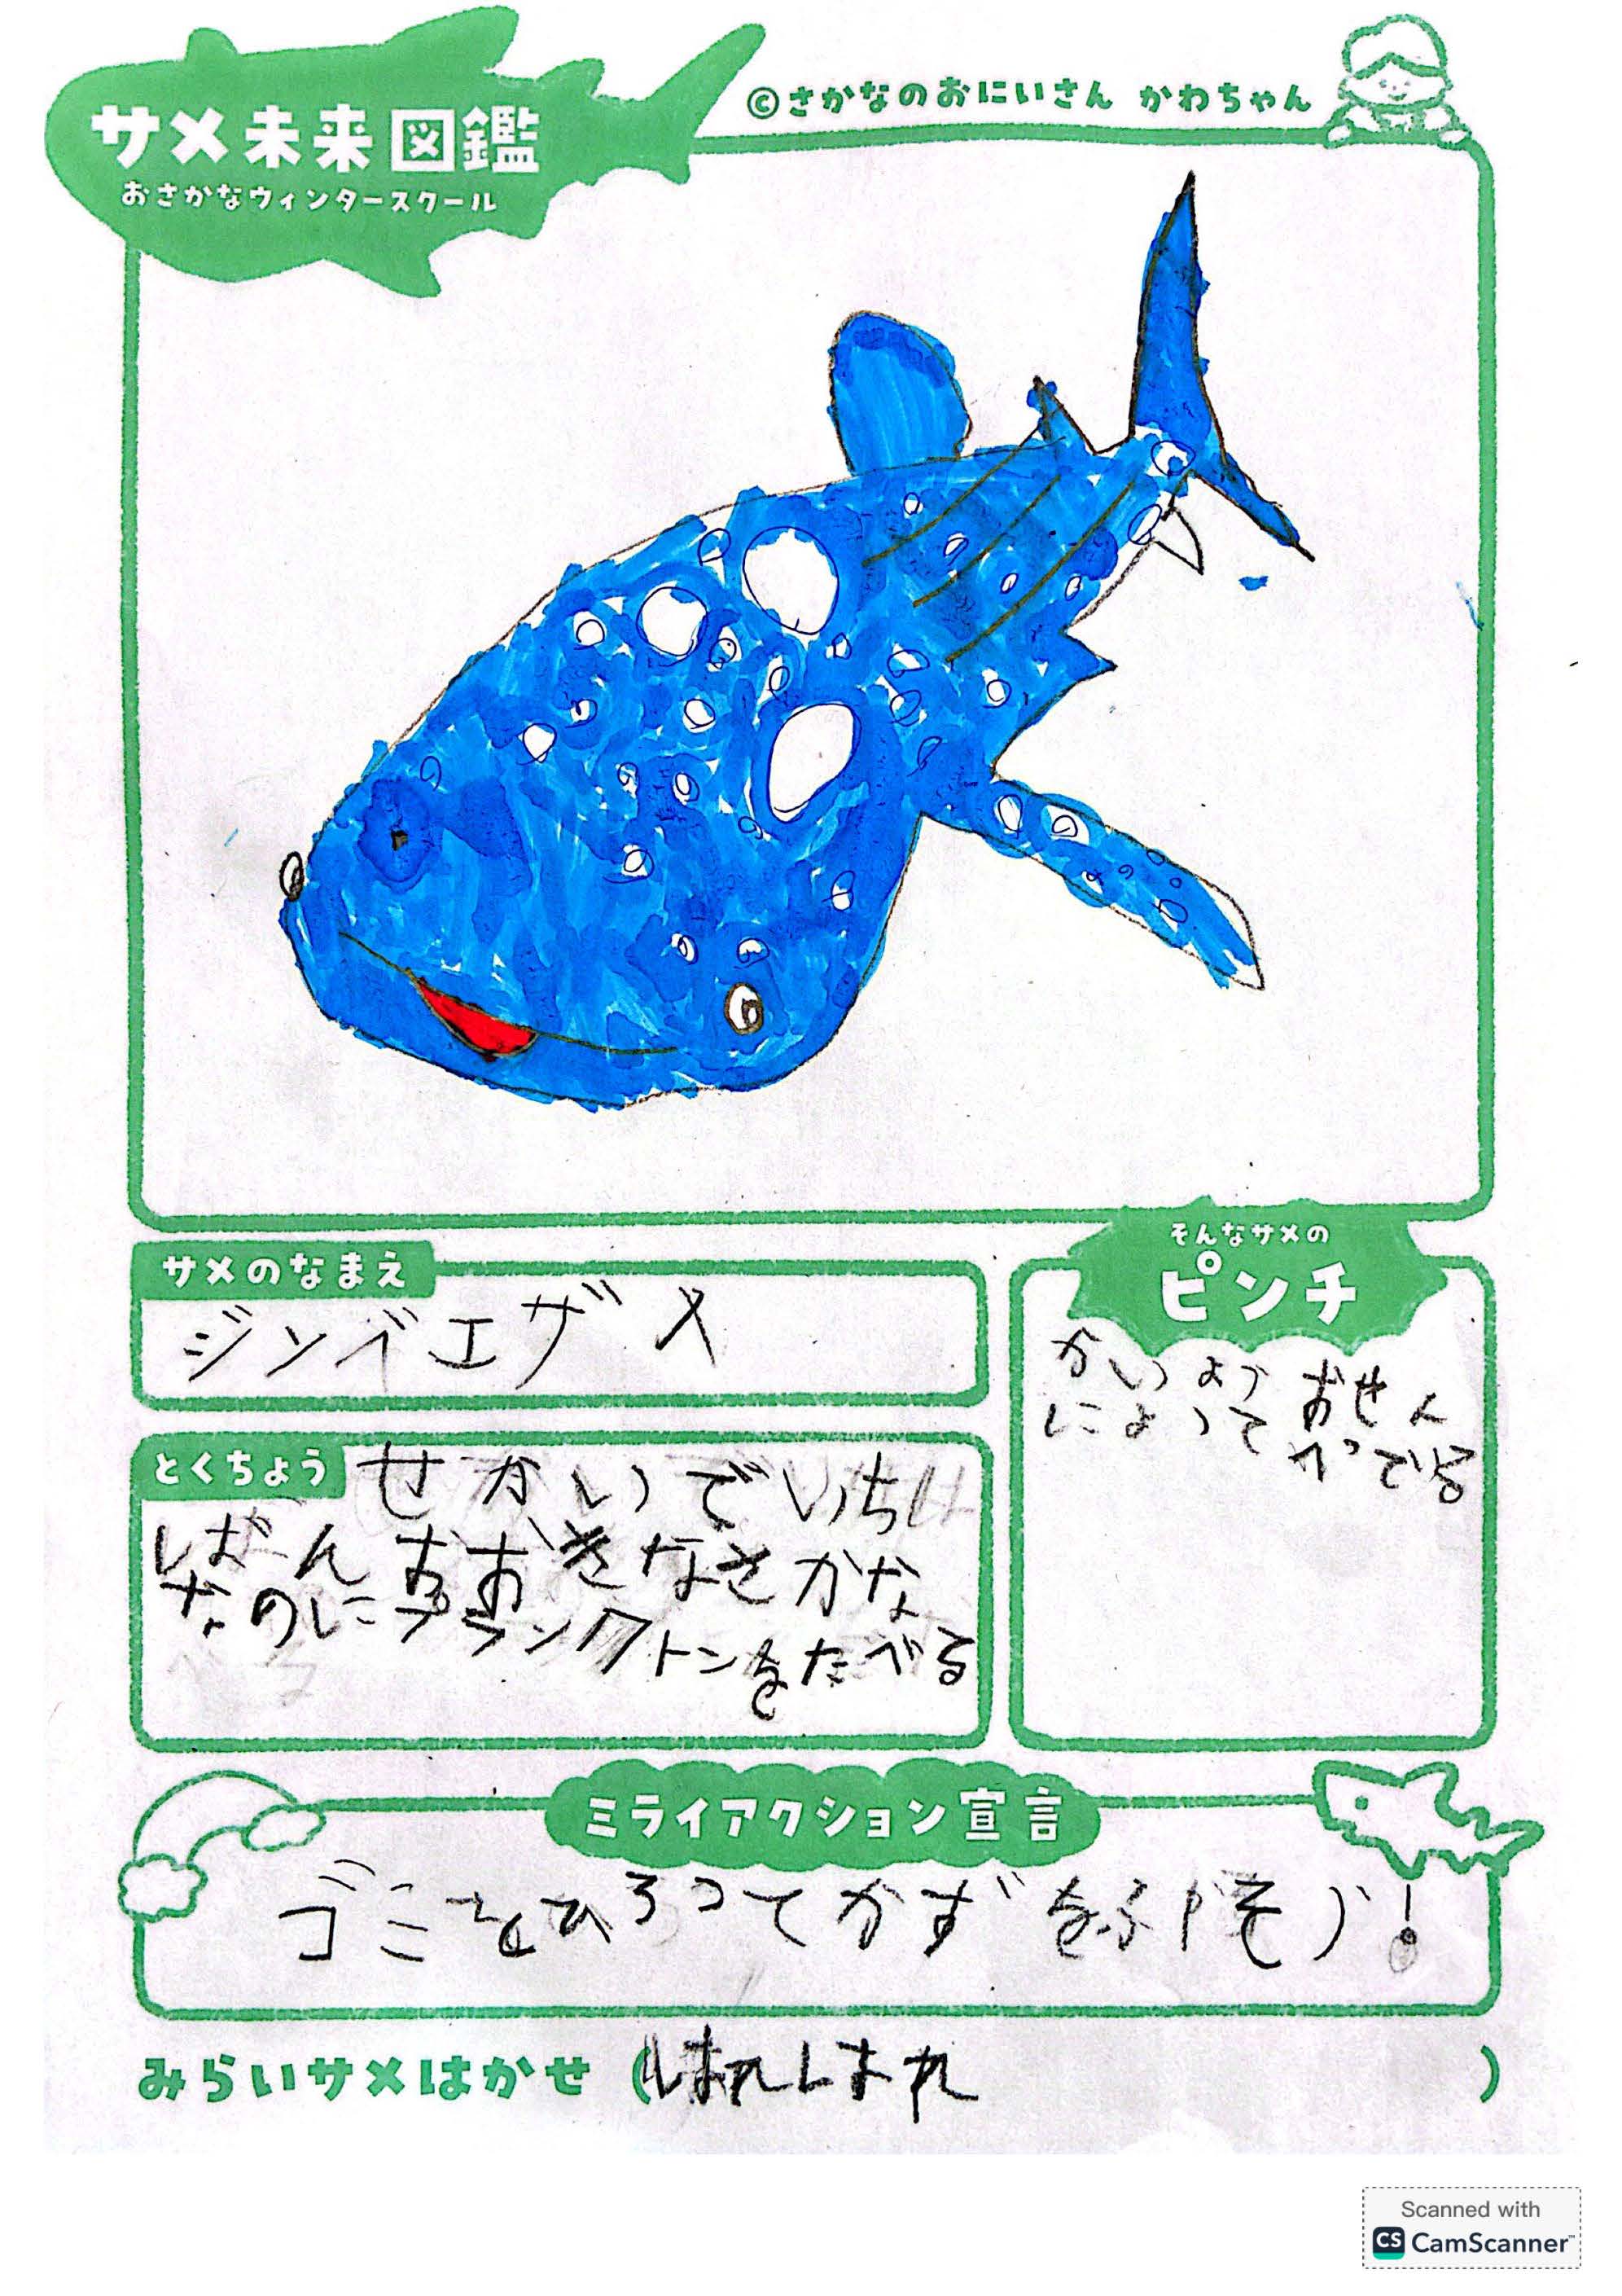 サメ未来図鑑
おさかなウィンタースクール
©さかなのおにいさん かわちゃん
サメのなまえ
ジンベエザメ
とくちょう
せかいでいち
ばんおおきなさかな
なのにプランクトンをたべる
そんなサメの
ピンチ
かいよう おせん
によって
ミライアクション宣言
ゴミをひろってかずを
みらいサメはかせ (はれはれ)
Scanned with
CS CamScanner